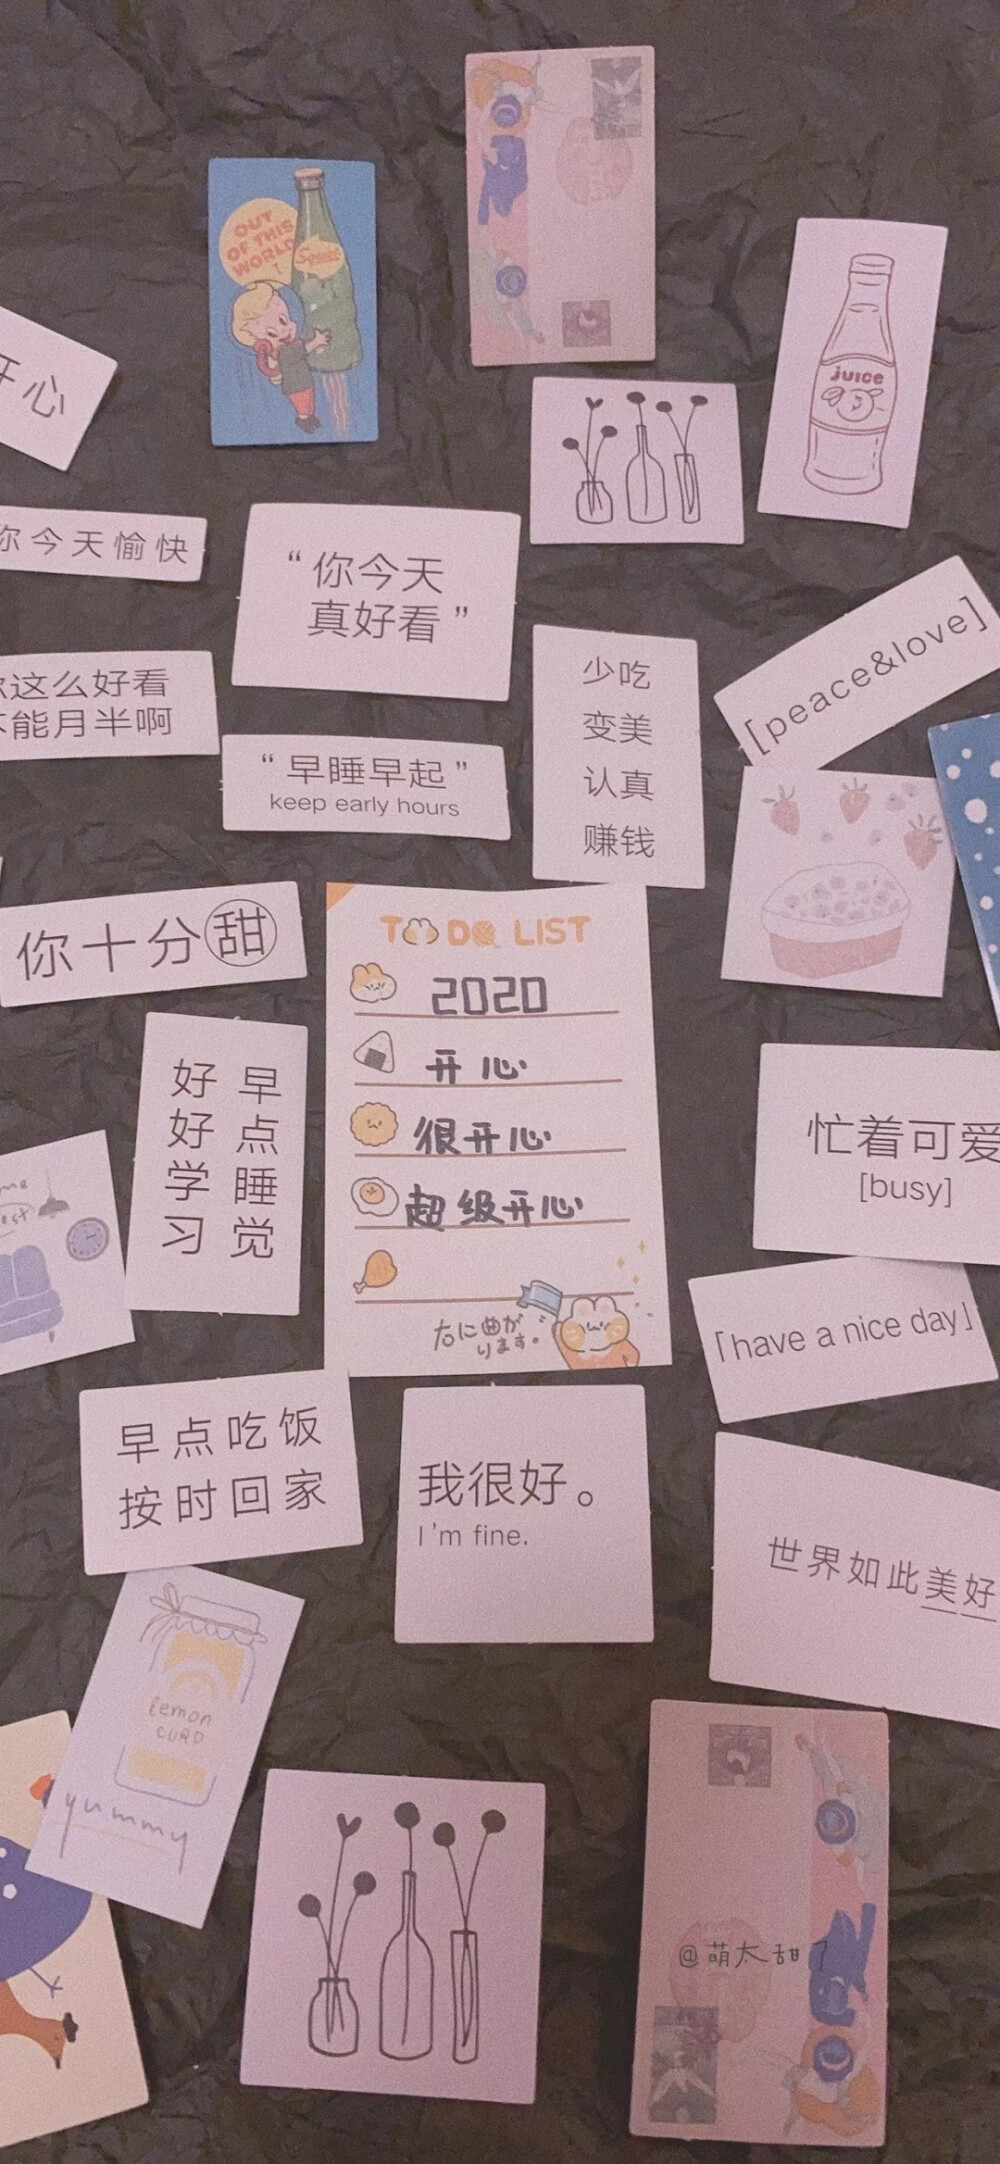 OUT
OF THIS
WORLD
juice
开心
你今天愉快
“你今天
真好看”
[peace&love]
这么好看
能月半啊
少吃
变美
认真
赚钱
“早睡早起”
keep early hours
你十分甜
TO DO LIST
2020
开心
很开心
超级开心
早点睡觉
好好学习
忙着可爱
[busy]
「have a nice day」
早点吃饭
按时回家
我很好。
I'm fine.
世界如此美好
lemon
CURD
yummy
@萌太甜了